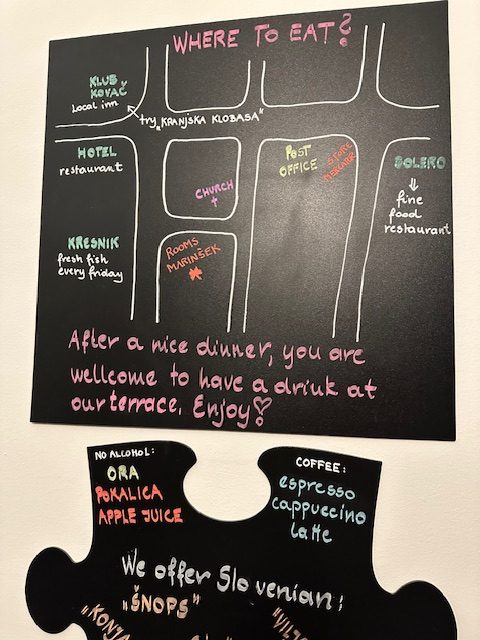 WHERE TO EAT?
KLUB
KOVAČ
Local inn
try „KRANJSKA KLOBASA"
HOTEL
restaurant
POST
OFFICE
STORE
MERCATOR
SOLERO
⇓
fine
food
restaurant
CHURCH
†
KRESNIK
fresh fish
every friday
ROOMS
MARINŠEK
After a nice dinner, you are
wellcome to have a drink at
our terrace. Enjoy!
NO ALCOHOL:
ORA
POKALICA
APPLE JUICE
COFFEE:
espresso
cappuccino
latte
We offer Slovenian:
„ŠNOPS"